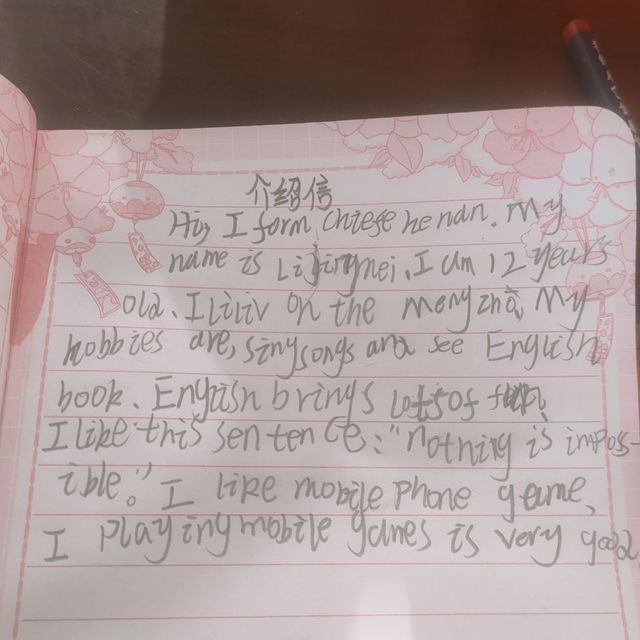 介绍信
Hi, I form Chiese he nan. My
name is Lijingmei. I am 12 years
old. I liliv on the meng zha. My
hobbies are, sing songs and see English
book. English brings lots of fun.
I like this sentence: "nothing is impos-
ible." I like mobile phone game.
I playing mobile games is very good.